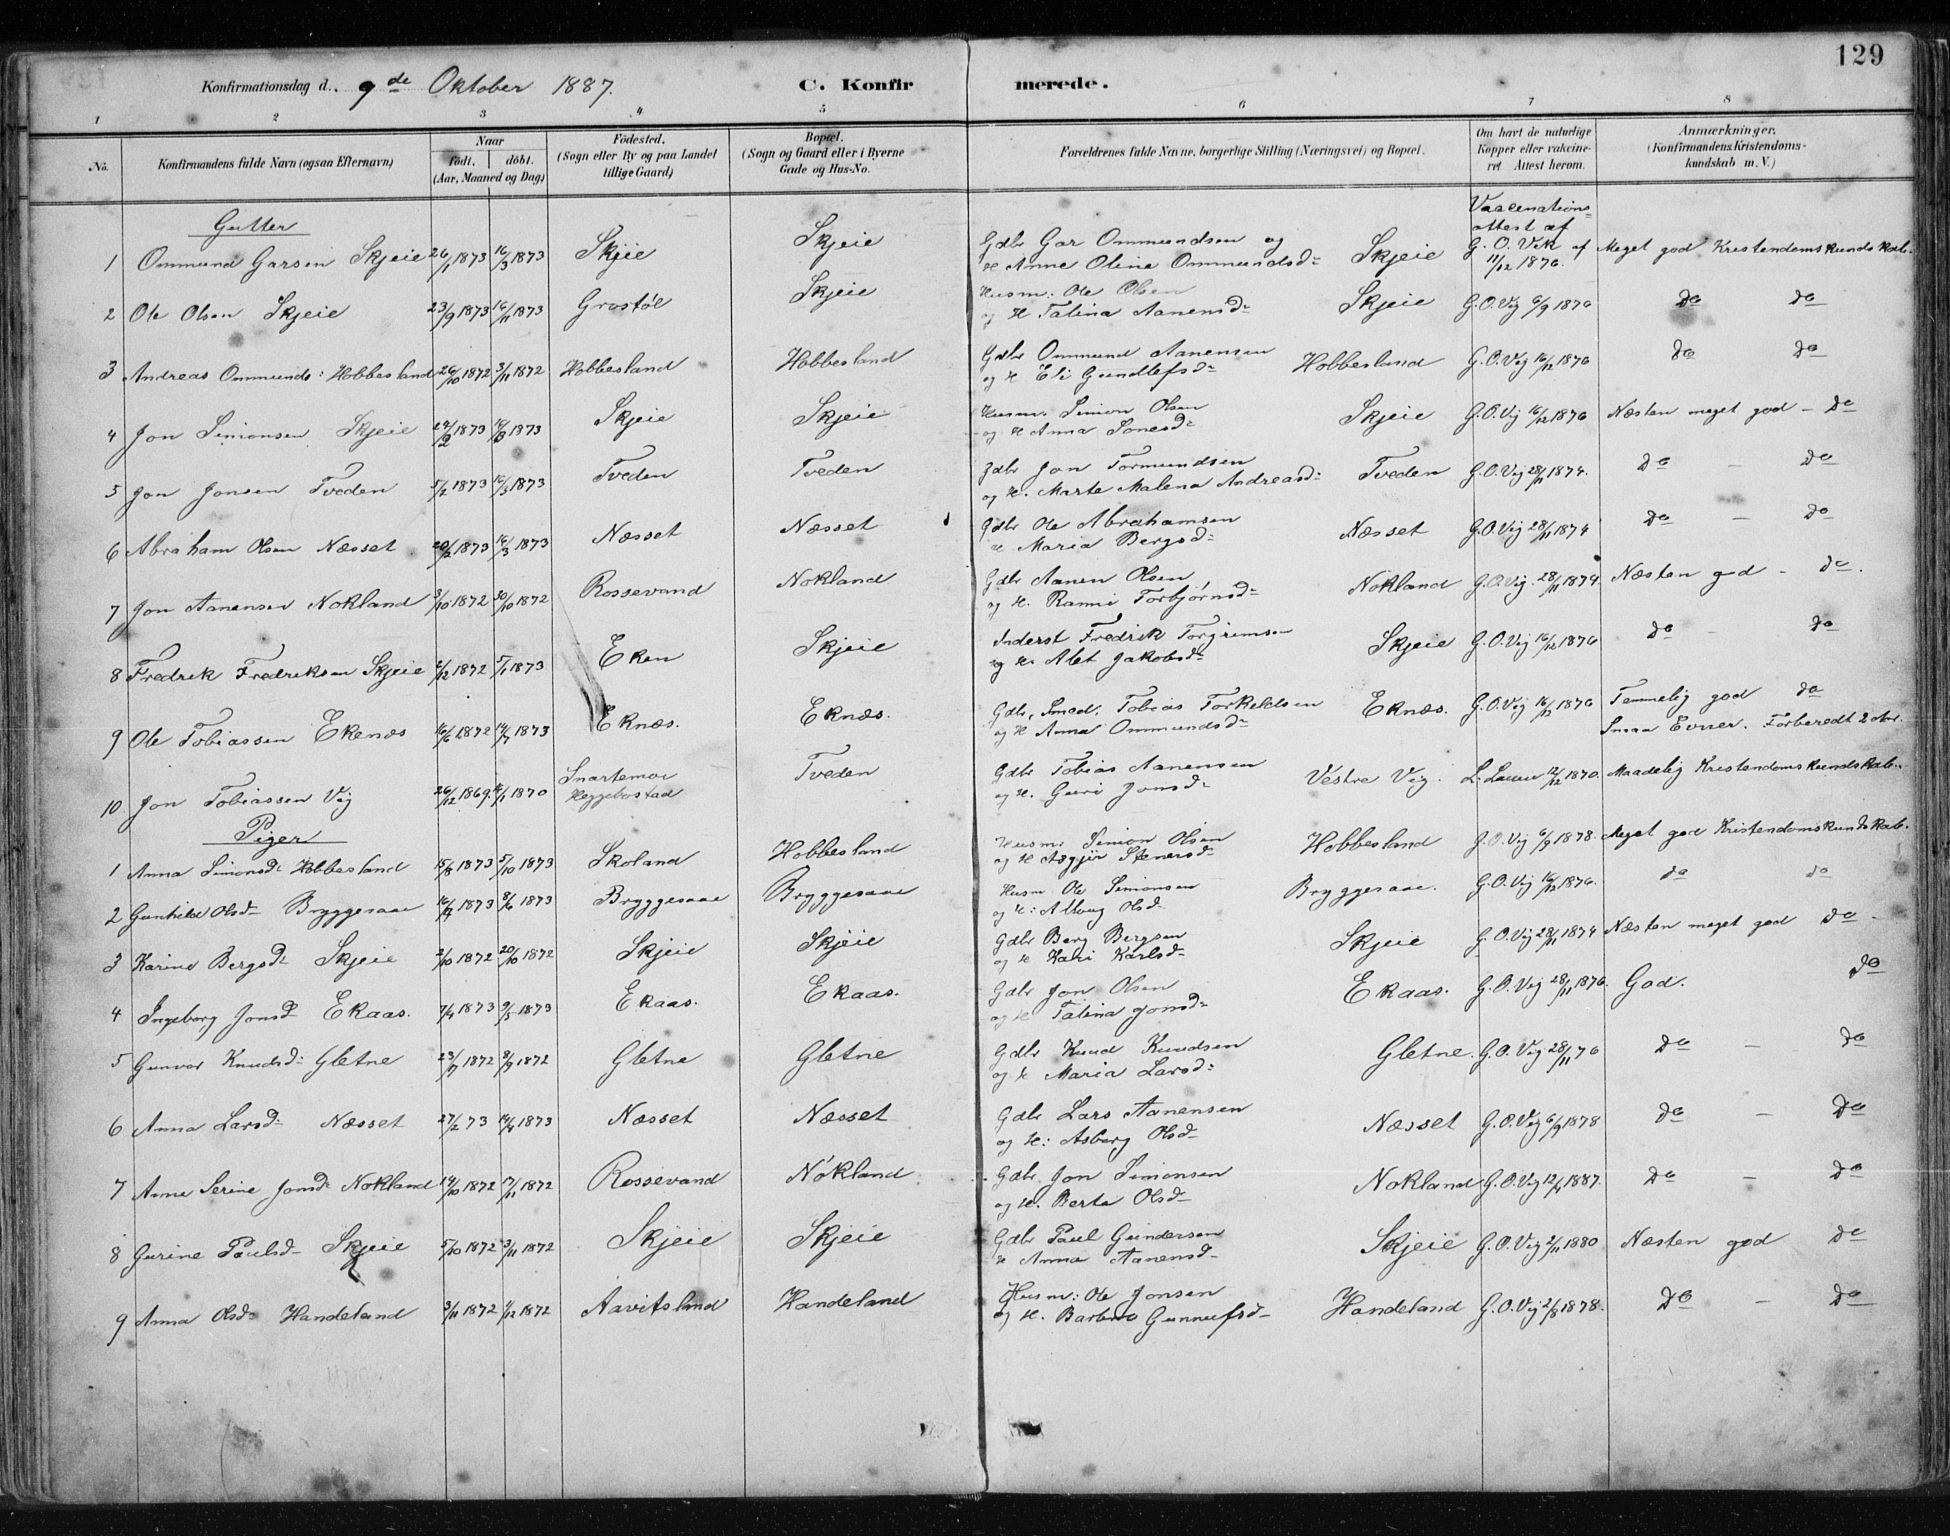 129
Konfirmationsdag d. 9de Oktober 1887. C. Konfirmerede.
1 2 3 4 5 6 7 8
No. Konfirmandens fulde Navn (ogsaa Efternavn) Naar født, døbt. (Aar, Maaned og Dag) Fødested. (Sogn eller By og paa Landet tillige Gaard) Bopæl. (Sogn og Gaard eller i Byerne Gade og Hus-No. Forældrenes fulde Navne, borgerlige Stilling (Næringsvei) og Bopæl. Om havt de naturlige Kopper eller vakcineret Attest herom. Anmærkninger. (Konfirmandens Kristendomskundskab m. V.)
Gutter
1 Ommund Garsen Skjeie 26/1 1873 16/3 1873 Skjeie Skjeie Gdbr Gar Ommundsen og H Anne Oline Ommundsd: Skjeie Vaccenations= attest af G. O. Vek af 11/12 1876. Meget god Kristendomskundskab.
2 Ole Olsen Skjeie 23/9 1873 16/11 1873 Grostøl Skjeie Husm: Ole Olsen og H Talina Aanensd: Skjeie G. O. Vig 6/9 1876 do do
3 Andreas Ommunds: Hobbesland 26/10 1872 3/11 1872 Hobbesland Hobbesland Gdbr Ommund Aanensen og H Eli Gundlefsd: Hobbesland G. O. Vig 16/12 1876 do do
4 Jon Simonsen Skjeie 1873 1873 Skjeie Skjeie Husm. Simon Olsen og H Anna Sonesd: Skjeie G. O. Vig 16/12 1876 Næsten meget god - Do
5 Jon Jonsen Tveden 5/2 1873 16/3 1873 Tveden Tveden Gdbr Jon Tormundsen og H. Marte Malena Andreasd: Tveden G. O. Vig 28/11 1874. Do - Do
6 Abraham Olsen Næsset 20/2 1873 16/3 1873 Næsset Næsset Gdbr Ole Abrahamsen H Maria Bergsd: Næsset G. O. Vig 28/11 1874 Do - Do
7 Jon Aanensen Nokland 3/10 1872 20/10 1872 Rossevand Nokland Gdbr Aanen Olsen og H. Ranni Torbjørnsd: Nokland G. O. Vig 28/11 1874. Næsten god - do.
8 Fredrik Fredriksen Skjeie 2/12 1872 5/1 1873 Eken Skjeie Inderst Fredrik Torgrimsen og H. Alet Jakobsd: Skjeie G. O. Vig 16/12 1876 do - do
9 Ole Tobiassen Ekenæs 1872 1873 Eknæs. Eknæs. Gdbr, Smed. Tobias Torkeldsen og H Anna Ommundsd: Eknæs. G. O. Vig 16/12 1876 Temmelig god do Smaa Evner. Forberedt 2 Aar.
10. Jon Tobiassen Vig 26/12 1869. 1870 Snartemoe Heggebostad Tveden Gdbr Tobias Aanensen og H. Guri Jonsd: Vestre Vig. 12/12 1870. Maadelig Kristendomskundskab.
Piger
1 Anna Simonsd: Hobbesland 15/8 1873 5/10 1873 Skoland Hobbesland Husm. Simon Olsen og H Asgjer Stenersd: Hobbesland G. O. Vig 6/9 1878. Meget god Kristendomskundskab.
2 Gunhild Olsd: Bryggesaae 1873 8/6 1873 Bryggesaae Bryggesaae Husm. Ole Simonsen og H: Alloug Olsd: Bryggesaae. G. O. Vig 16/12 1876. do do
3 Karine Bergsd: Skjeie 2/10 1872 20/10 1872 Skjeie Skjeie Gdbr Berg Bergsen og H Kari Karlsd: Skjeie G. O. Vig 28/11 1874 Næsten meget god Do -
4 Ingeborg Jonsd: Ekaas. 7/4 1873 9/5 1873 Ekaas. Ekaas. Gdbr Jon Olsen og H Talina Jonsd: Ekaas. G. O. Vig 28/11 1876. God. do
5 Gunvor Knudsd: Gletne 23/7 1872 8/9 1872 Gletne Gletne Gdbr Knud Knudsen og H Maria Larsd: Gletne. G. O. Vig 28/11 76 Do - do
6 Anna Larsd: Næsset 27/2 73 14/4 1873 Næsset Næsset Gdbr Lars Aanensen og H: Asborg Olsd: Næsset G. O. Vig 6/9 1878 Do - Do
7 Anne Serine Jonsd: Nokland 14/10 1872 17/11 1872 Rossevand Nøkland Gdbr Jon Simonsen og H. Berta Olsd: Nokland G. O. Vig 12/4 1887. Do - Do
8 Gurine Paulsd: Skjeie 5/10 1872 3/11 1872 Skjeie Skjeie Gdbr Paul Gundersen H Anna Aanensd: Skjeie G. O. Vig 2/11 1880 Næsten god do
9 Anna Olsd: Handeland 3/11 1872 1/12 1872 Aavitsland Handeland Husm: Ole Jonsen og H. Barbro Gunnufsd: Handeland G. O. Vig 2/8 1878. Do - Do